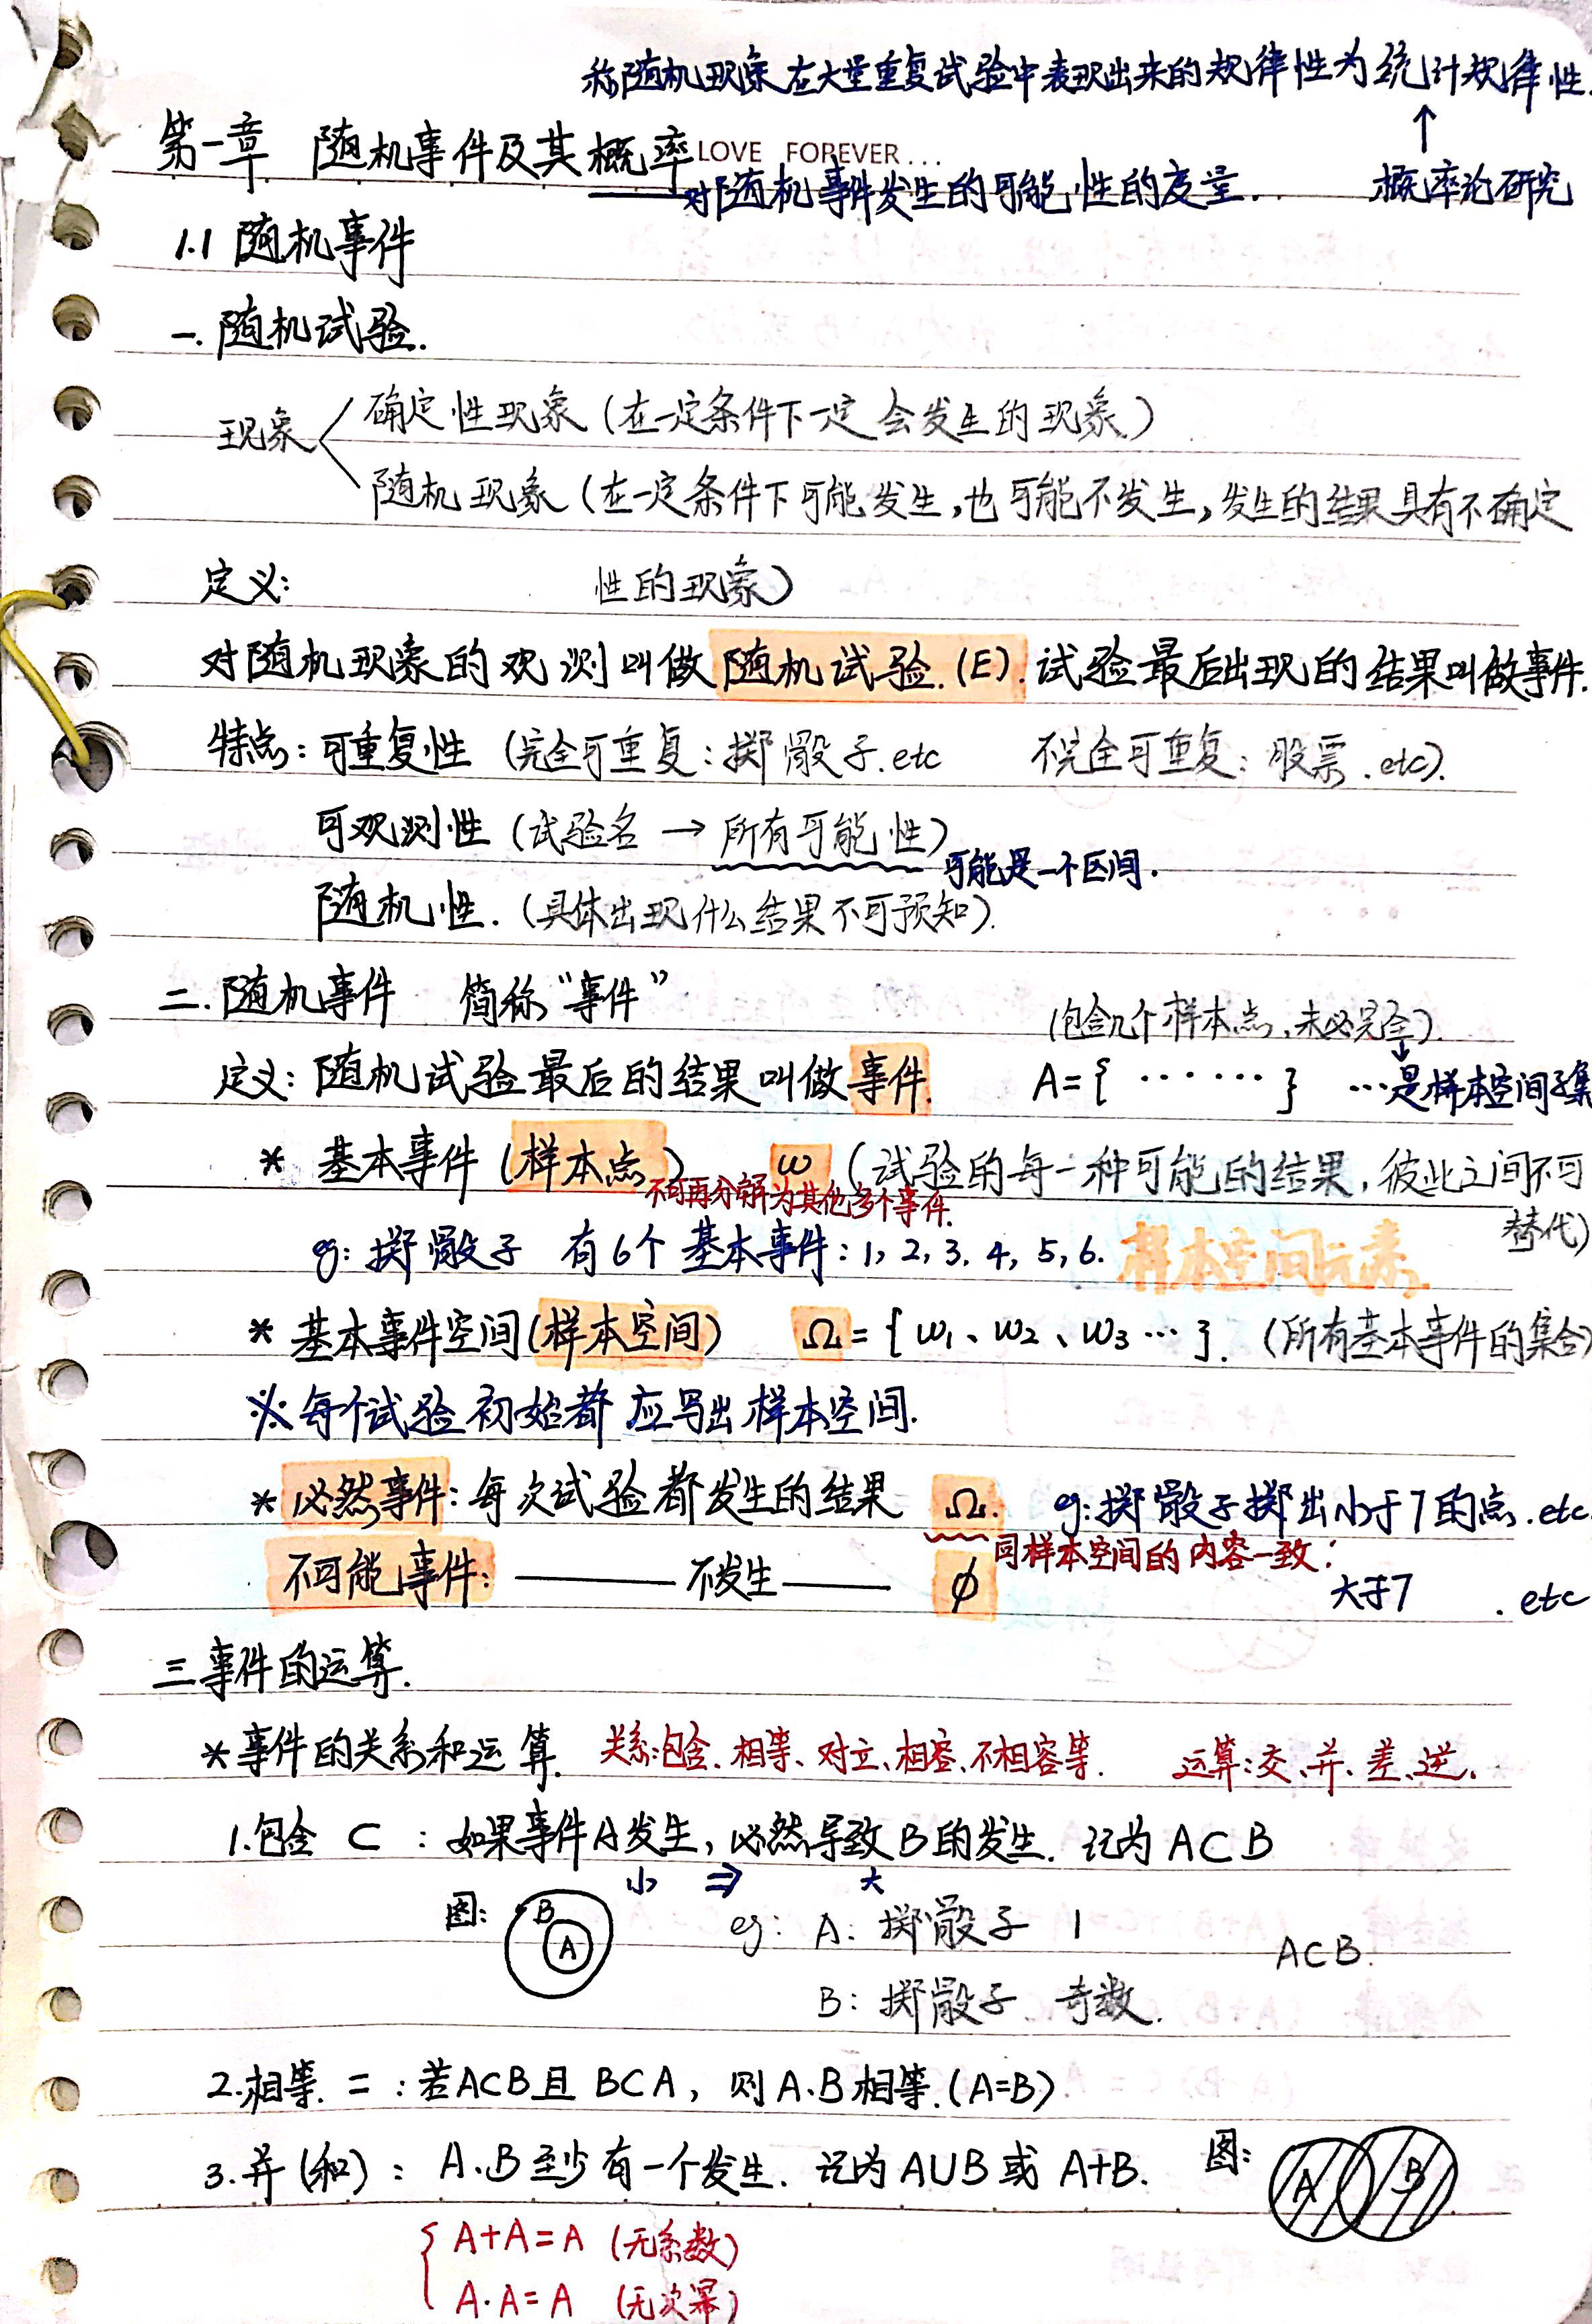 称随机现象在大量重复试验中表现出来的规律性为统计规律性.
↑
概率论研究
第一章 随机事件及其概率 LOVE FOREVER...
——对随机事件发生的可能性的度量.
1.1 随机事件
一. 随机试验.
现象
确定性现象 (在一定条件下一定会发生的现象)
随机现象 (在一定条件下可能发生,也可能不发生,发生的结果具有不确定
性的现象)
定义:
对随机现象的观测叫做随机试验.(E). 试验最后出现的结果叫做事件.
特点: 可重复性 (完全可重复: 掷骰子.etc 不完全可重复: 股票.etc).
可观测性 (试验名 → 所有可能性)
可能是一个区间.
随机性. (具体出现什么结果不可预知).
二. 随机事件 简称“事件”
(包含几个样本点,未必完全).
定义: 随机试验最后的结果叫做事件. A={ ······ } ···是样本空间子集
* 基本事件 (样本点) ω (试验的每一种可能的结果, 彼此之间不可
替代)
不可再分解为其他多个事件.
eg: 掷骰子 有6个基本事件: 1, 2, 3, 4, 5, 6. 样本空间元素
* 基本事件空间(样本空间) Ω = { ω₁、ω₂、ω₃ ··· }. (所有基本事件的集合)
※ 每个试验初始都应写出样本空间.
* 必然事件: 每次试验都发生的结果 Ω. eg: 掷骰子掷出小于7的点.etc.
同样本空间的内容一致!
不可能事件: —— 不发生 —— ∅ 大于7 .etc
三 事件的运算.
* 事件的关系和运算. 关系:包含、相等、对立、相容、不相容等. 运算:交、并、差、逆.
1.包含 ⊂ : 如果事件A发生, 必然导致B的发生. 记为 A⊂B
小 ⇒ 大
图: B A
eg: A: 掷骰子 1
A⊂B.
B: 掷骰子 奇数.
2.相等. = : 若A⊂B且 B⊂A, 则 A.B 相等.(A=B)
3.并 (和) : A.B 至少有一个发生. 记为 A∪B 或 A+B. 图: A B
A+A=A (无系数)
A·A=A (无次幂)